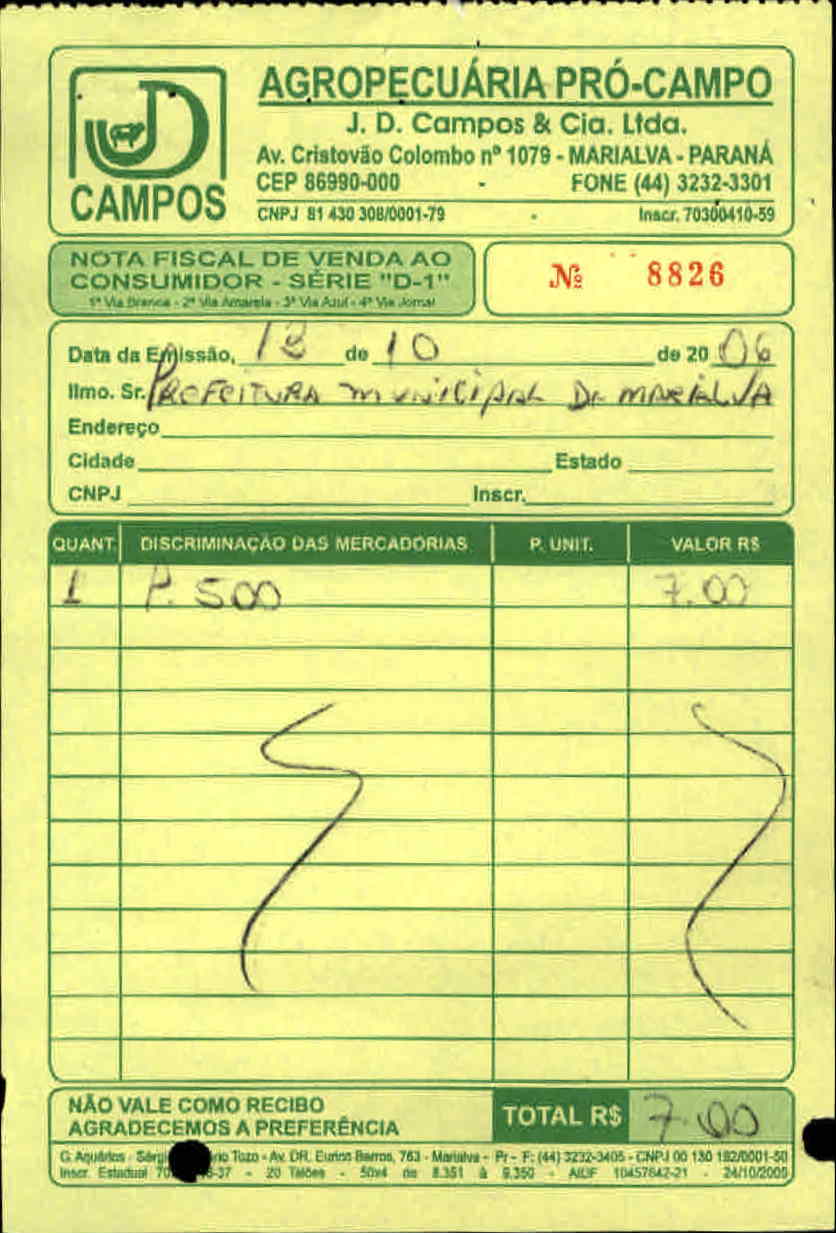 AGROPECUÁRIA PRÓ-CAMPO
J. D. Campos & Cia. Ltda.
Av. Cristovão Colombo nº 1079 - MARIALVA - PARANÁ
CEP 86990-000 - FONE (44) 3232-3301
CNPJ 81 430 308/0001-79 - Inscr. 70300410-59
JD
CAMPOS
NOTA FISCAL DE VENDA AO
CONSUMIDOR - SÉRIE "D-1"
1ª Via Branca - 2ª Via Amarela - 3ª Via Azul - 4ª Via Jornal
Nº 8826
Data da Emissão, 18 de 10 de 2006
Ilmo. Sr. PREFEITURA MUNICIPAL DE MARIALVA
Endereço
Cidade Estado
CNPJ Inscr.
QUANT. DISCRIMINAÇÃO DAS MERCADORIAS P. UNIT. VALOR R$
1 P. 500 7.00
NÃO VALE COMO RECIBO
AGRADECEMOS A PREFERÊNCIA
TOTAL R$ 7.00
G. Aquários - Tozo - Av. DR. Eurico Barros, 763 - Marialva - Pr - F: (44) 3232-3405 - CNPJ 00 130 192/0001-50
Inscr. Estadual -37 - 20 Talões - 50x4 de 8.351 à 9.350 - AIDF 10457842-21 - 24/10/2005